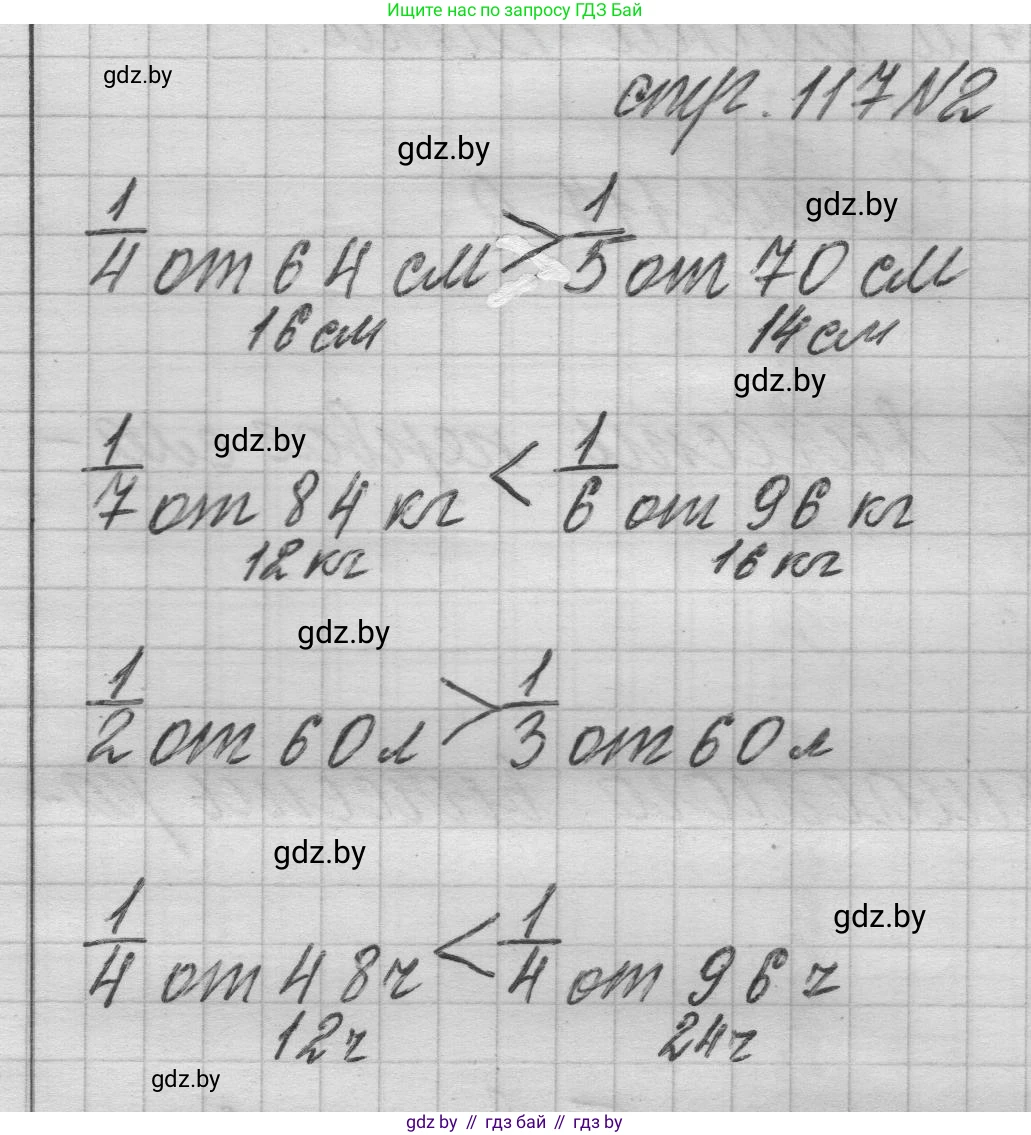 Ищите нас по запросу ГДЗ Бай
gdz.by
стр. 117 №2
gdz.by
gdz.by
1/4 от 64 см > 1/5 от 70 см
16 см 14 см
gdz.by
gdz.by
1/7 от 84 кг < 1/6 от 96 кг
12 кг 16 кг
gdz.by
1/2 от 60 л > 1/3 от 60 л
gdz.by
gdz.by
1/4 от 48 ч < 1/4 от 96 ч
12 ч 24 ч
gdz.by
gdz.by // гдз бай // гдз by